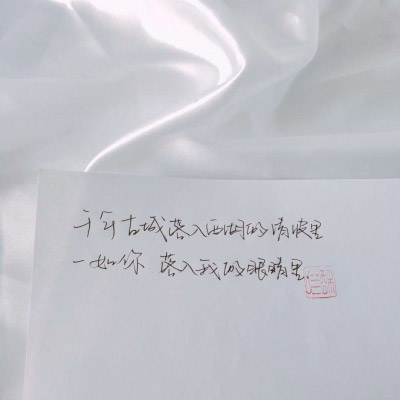 千年古城落入西湖的清波里
一如你 落入我的眼睛里